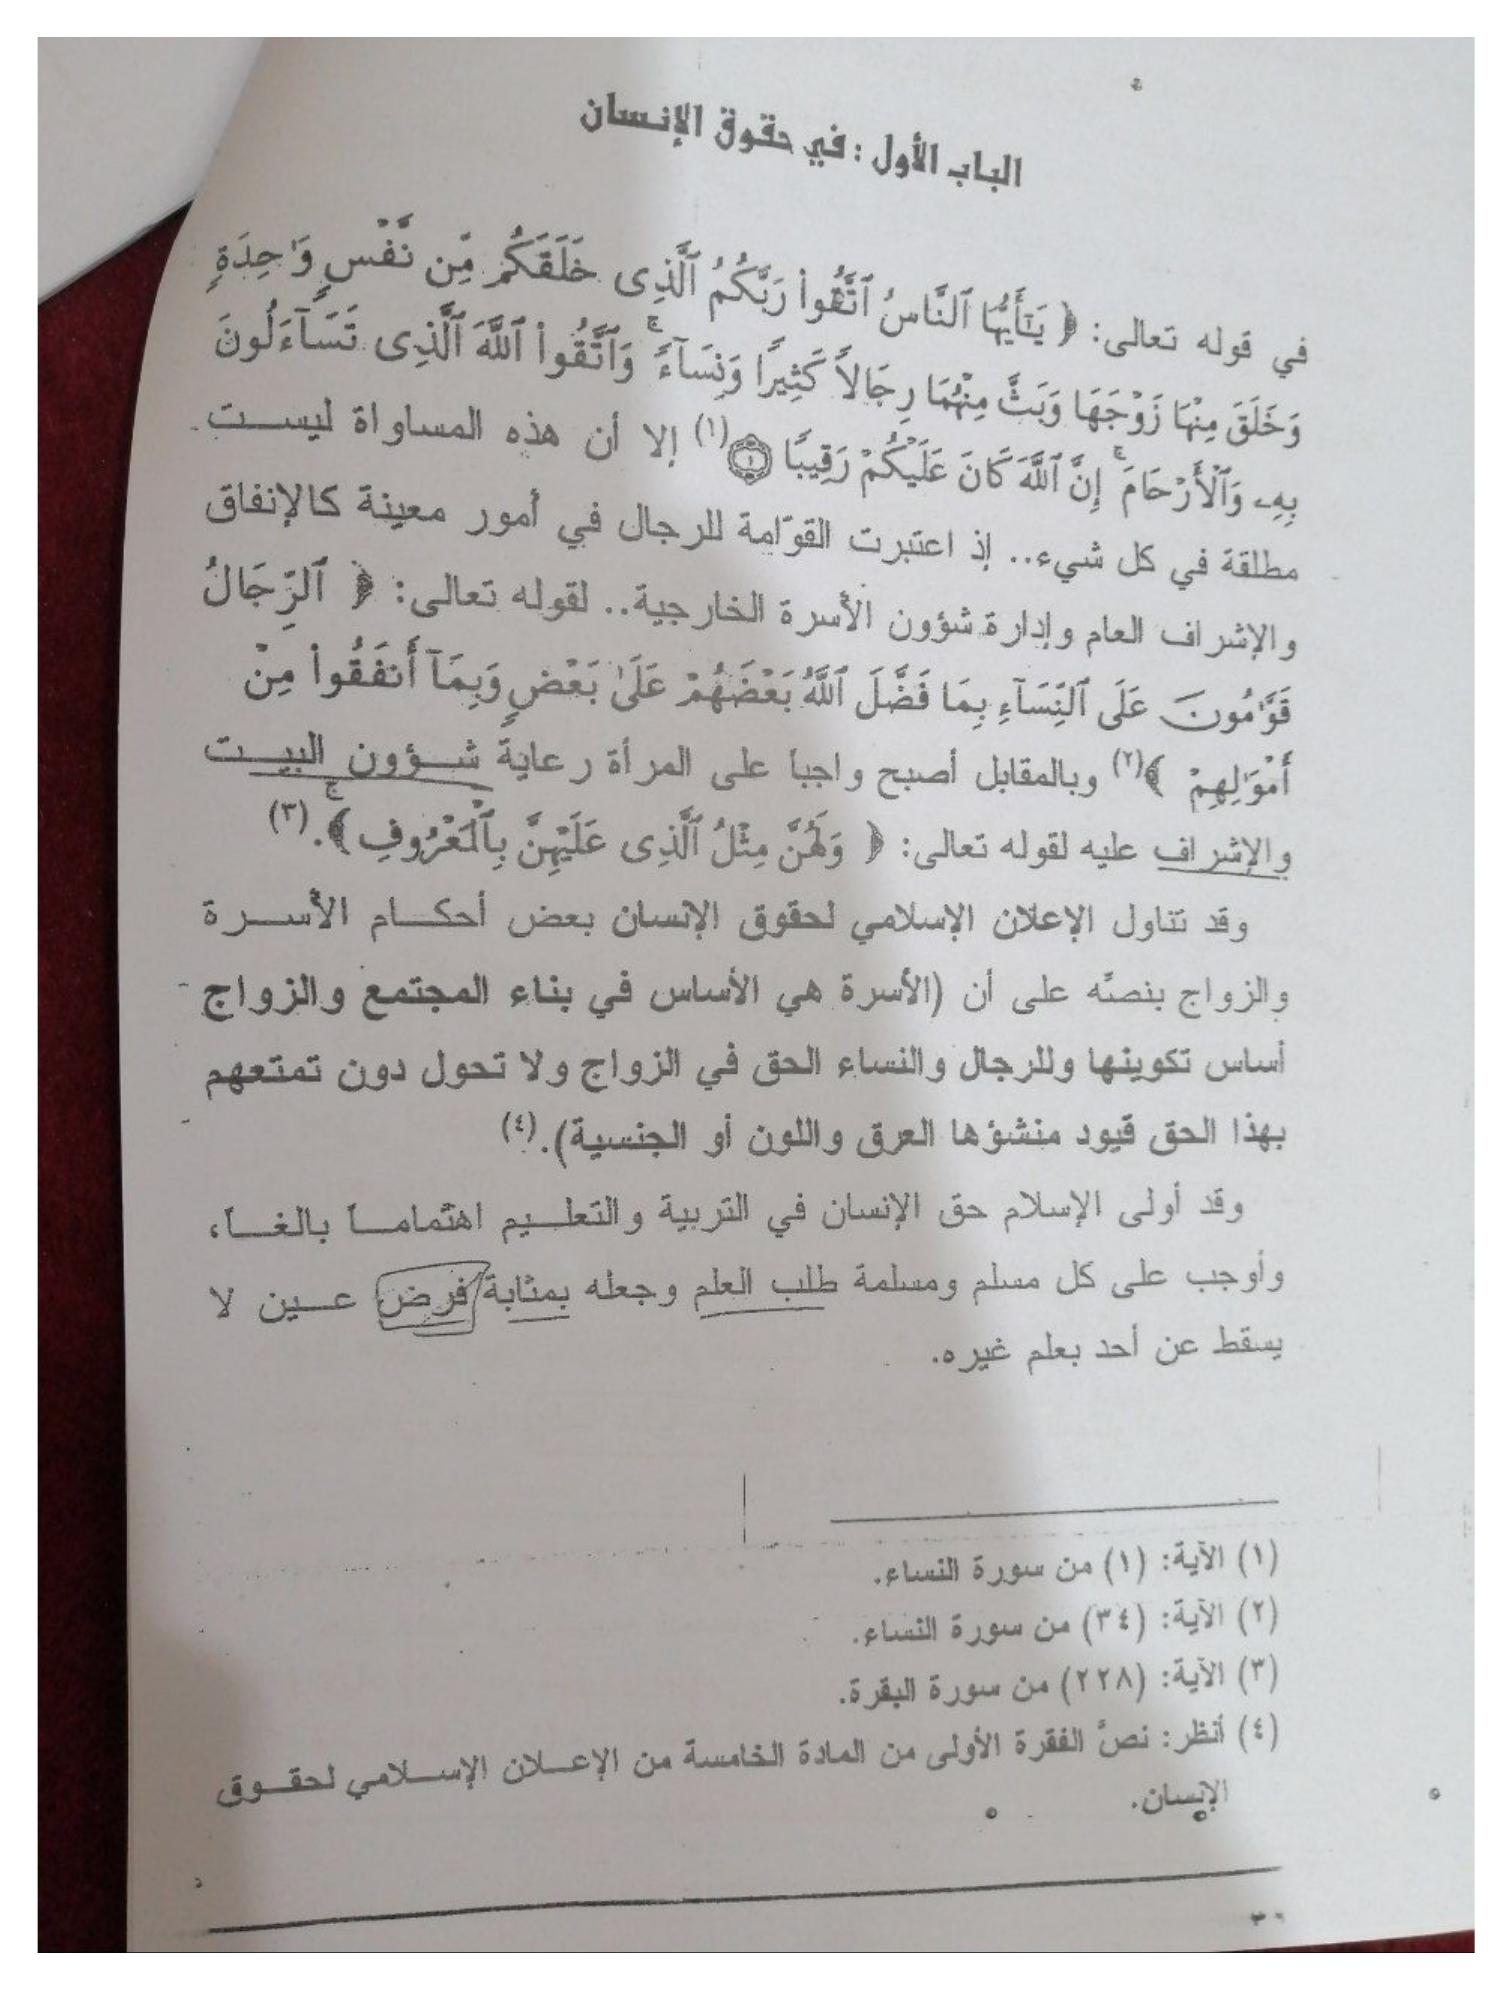 الباب الأول : في حقوق الإنسان
في قوله تعالى: ﴿ يَٰٓأَيُّهَا ٱلنَّاسُ ٱتَّقُوا۟ رَبَّكُمُ ٱلَّذِى خَلَقَكُم مِّن نَّفْسٍ وَٰحِدَةٍ
وَخَلَقَ مِنْهَا زَوْجَهَا وَبَثَّ مِنْهُمَا رِجَالًا كَثِيرًا وَنِسَآءً ۚ وَٱتَّقُوا۟ ٱللَّهَ ٱلَّذِى تَسَآءَلُونَ
بِهِۦ وَٱلْأَرْحَامَ ۚ إِنَّ ٱللَّهَ كَانَ عَلَيْكُمْ رَقِيبًا ۝١ (١) إلا أن هذه المساواة ليست
مطلقة في كل شيء.. إذ اعتبرت القوّامة للرجال في أمور معينة كالإنفاق
والإشراف العام وإدارة شؤون الأسرة الخارجية.. لقوله تعالى: ﴿ ٱلرِّجَالُ
قَوَّٰمُونَ عَلَى ٱلنِّسَآءِ بِمَا فَضَّلَ ٱللَّهُ بَعْضَهُمْ عَلَىٰ بَعْضٍ وَبِمَآ أَنفَقُوا۟ مِنْ
أَمْوَٰلِهِمْ ﴾(٢) وبالمقابل أصبح واجباً على المرأة رعاية شؤون البيت
والإشراف عليه لقوله تعالى: ﴿ وَلَهُنَّ مِثْلُ ٱلَّذِى عَلَيْهِنَّ بِٱلْمَعْرُوفِ ۚ ﴾.(٣)
وقد تناول الإعلان الإسلامي لحقوق الإنسان بعض أحكام الأسرة
والزواج بنصّه على أن (الأسرة هي الأساس في بناء المجتمع والزواج
أساس تكوينها وللرجال والنساء الحق في الزواج ولا تحول دون تمتعهم
بهذا الحق قيود منشؤها العرق واللون أو الجنسية).(٤)
وقد أولى الإسلام حق الإنسان في التربية والتعليم اهتماماً بالغاً،
وأوجب على كل مسلم ومسلمة طلب العلم وجعله بمثابة فرض عين لا
يسقط عن أحد بعلم غيره.
(١) الآية: (١) من سورة النساء.
(٢) الآية: (٣٤) من سورة النساء.
(٣) الآية: (٢٢٨) من سورة البقرة.
(٤) أنظر: نصّ الفقرة الأولى من المادة الخامسة من الإعلان الإسلامي لحقوق
الإنسان.